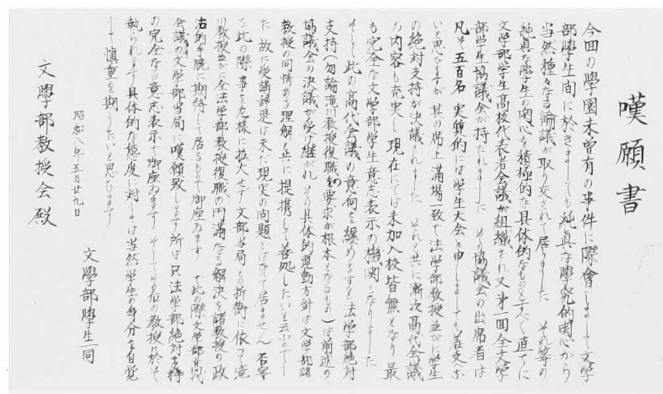 嘆願書
今回の學園未曽有の事件に際會しまして文學
部學生間に於きましても純真な學究的関心から
当然種々なる論議が取り交されて居りました それ等の
純真な學生の関心を積極的な具体的なものとすべく直ちに
文學部学生高校代表者会議が組織され又第一回全文學
部学生協議会が持たれました その協議会の出席者は
凡そ五百名 実質的には学生大会と申しましても差支な
いと思ひますが其の席上満場一致で法学部教授並びに学生
の絶対支持が決議されました それと共に漸次高代会議
の内容も充実し現在にては未加入校皆無となり最
も完全な文學部学生意志表示の機関となりました
そして此の高代会議の意向を纏めますと法学部絶対
支持(勿論滝川教授復職の要求が根本となるもの)は前述の
協議会の決議が受け継がれ その具体的運動方針は文学部諸
教授の同情ある理解と共に提携して善処したいと云ふのでし
た 故に受講辞退は未だ現実の問題とはなつて居ません 石宗
ろ此の際事を荒様に拡大せず文部当局との折衝に依つて滝
川教授並に全法学部教授復職の円満なる解決を諸教授の政
治的手腕に期待して居るもので御座ゐます で此の際文学部高代
会議の文学部当局に嘆願致します所は只法学部絶対支持
の完全なる意志表示で御座ゐます そして今后の教授会が
執られます具体的な態度に対しては当然学生の本分を自覚
して慎重を期したいと思ひます
昭和八年五月廿九日
文學部學生一同
文學部教授会殿